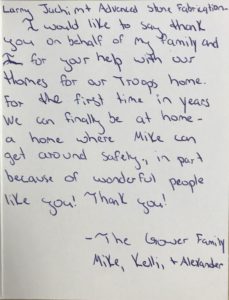 Larry Juchimt Advanced Stone Fabrication-
I would like to say thank
you on behalf of my family and
I for your help with our
Homes for our Troops home.
For the first time in years
we can finally be at home-
a home where Mike can
get around safely, in part
because of wonderful people
like you! Thank you!
-The Gower Family
Mike, Kelli, + Alexander